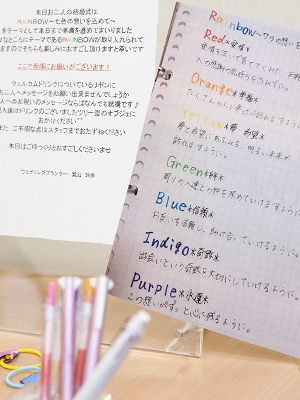 本日お二人の結婚式は
RAINBOW～七色の想いを込めて～
をテーマとして本日まで準備を進めてまいりました
なところにテーマであるRAINBOWが取り入れられて
ますのでそちらも楽しみにおすごし頂けますと幸いです
ここで皆様にお願いがございます！
ウェルカムドリンクについているリボンに
お二人へメッセージをお願い出来ませんでしょうか
人へのお祝いのメッセージならばなんでも結構です♪
後はドリンクのございましたツリー型のオブジェに
おかけください^^
また ご不明な点はスタッフまでおたずねください
本日はごゆっくりとおすごしくださいませ
ウェディングプランナー
Rainbow～7つの想い
Red
Orange
たくさんの
Yellow
明るい未来が
訪れますように。
Green
周りの人達との絆を深めていけますように。
Blue*信頼*
お互いを信頼し、助け合っていけますように。
Indigo*奇跡*
出会いという奇跡を大切にしていけますように。
Purple*永遠*
この想いがずっと心に残るように。